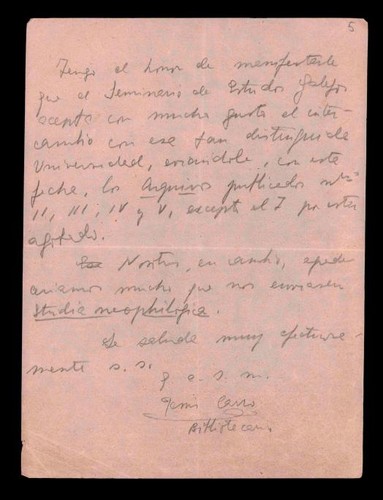 5
Tengo el honor de manifestarle
que el Seminario de Estudos Galegos
acepta con mucho gusto el inter-
cambio con esa tan distinguida
Universidad, enviándole, con esta
fecha, los Arquivos publicados
II, III, IV y V, excepto el I por estar
agotado.
Nosotros, en cambio, agrade-
ceríamos mucho que nos enviasen
Studia neophilologica.
Le saluda muy afectuosa-
mente s. s.
q. e. s. m.
Carro
Bibliotecario